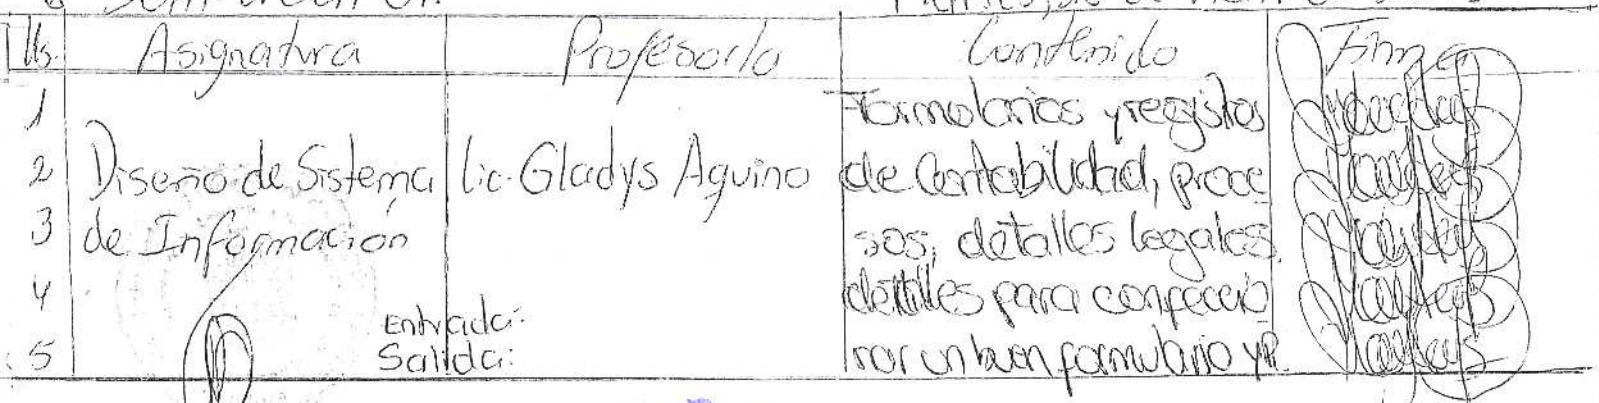 Hs. Asignatura Profesor/a Contenido Firma
1 Formularios y registos
2 Diseño de Sistema Lic. Gladys Aquino de Contabilidad, proce
3 de Información sos, detalles legales.
4 detalles para confeccio
Entrada:
5 Salida: nar un buen formulario y R.